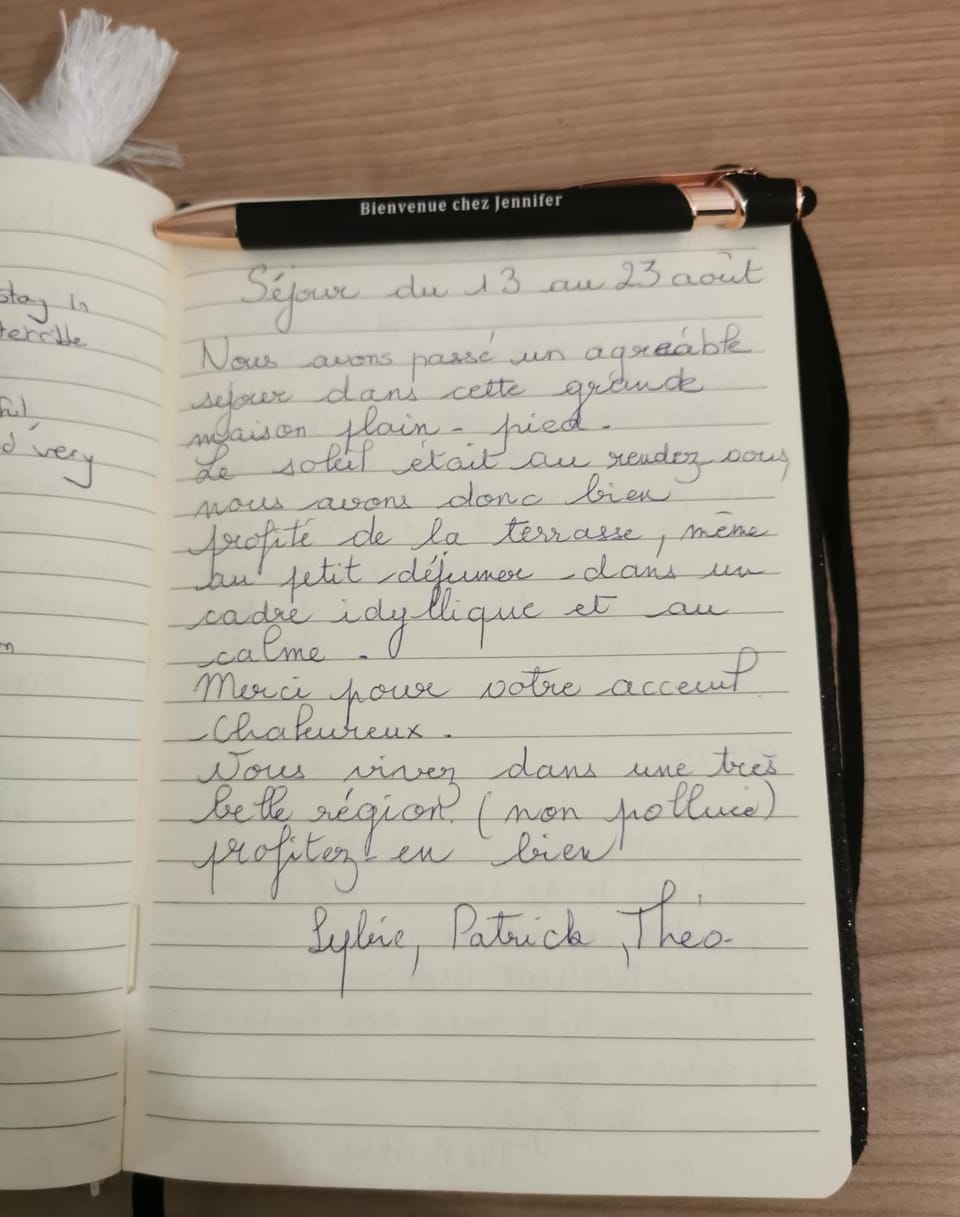 Bienvenue chez Jennifer
stay in
terrible
very
Séjour du 13 au 23 août
Nous avons passé un agréable
sejour dans cette grande
maison plain - pied.
Le soleil était au rendez vous,
nous avons donc bien
profité de la terrasse, même
au petit déjeuner dans un
cadre idyllique et au
calme.
Merci pour votre acceuil
chaleureux.
Vous vivez dans une très
belle région (non polluée)
profitez-en bien
Sylvie, Patrick, Théo-